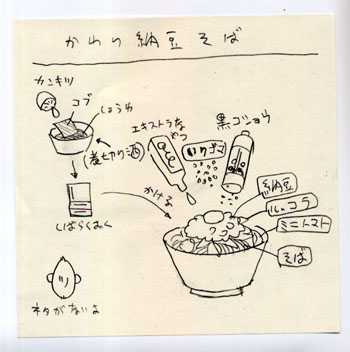 かわり納豆そば
カンキツ
コブ
しょうゆ
(煮切り酒)
しばらくおく
かける
エキストラなやつ
いりゴマ
黒コショウ
納豆
ルッコラ
ミニトマト
そば
ネタがないよ